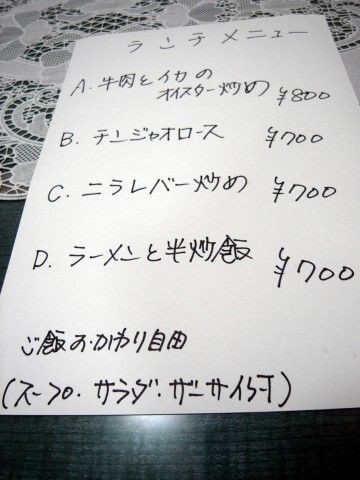 ランチメニュー
A. 牛肉とイカの
オイスター炒め ¥800
B. チンジャオロース ¥700
C. ニラレバー炒め ¥700
D. ラーメンと半炒飯 ¥700
ご飯おかわり自由
(スープ・サラダ・ザーサイ付)